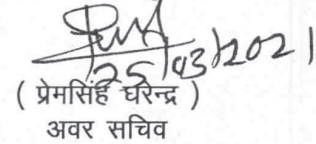 25/03/2021
( प्रेमसिंह घरेन्द्र )
अवर सचिव